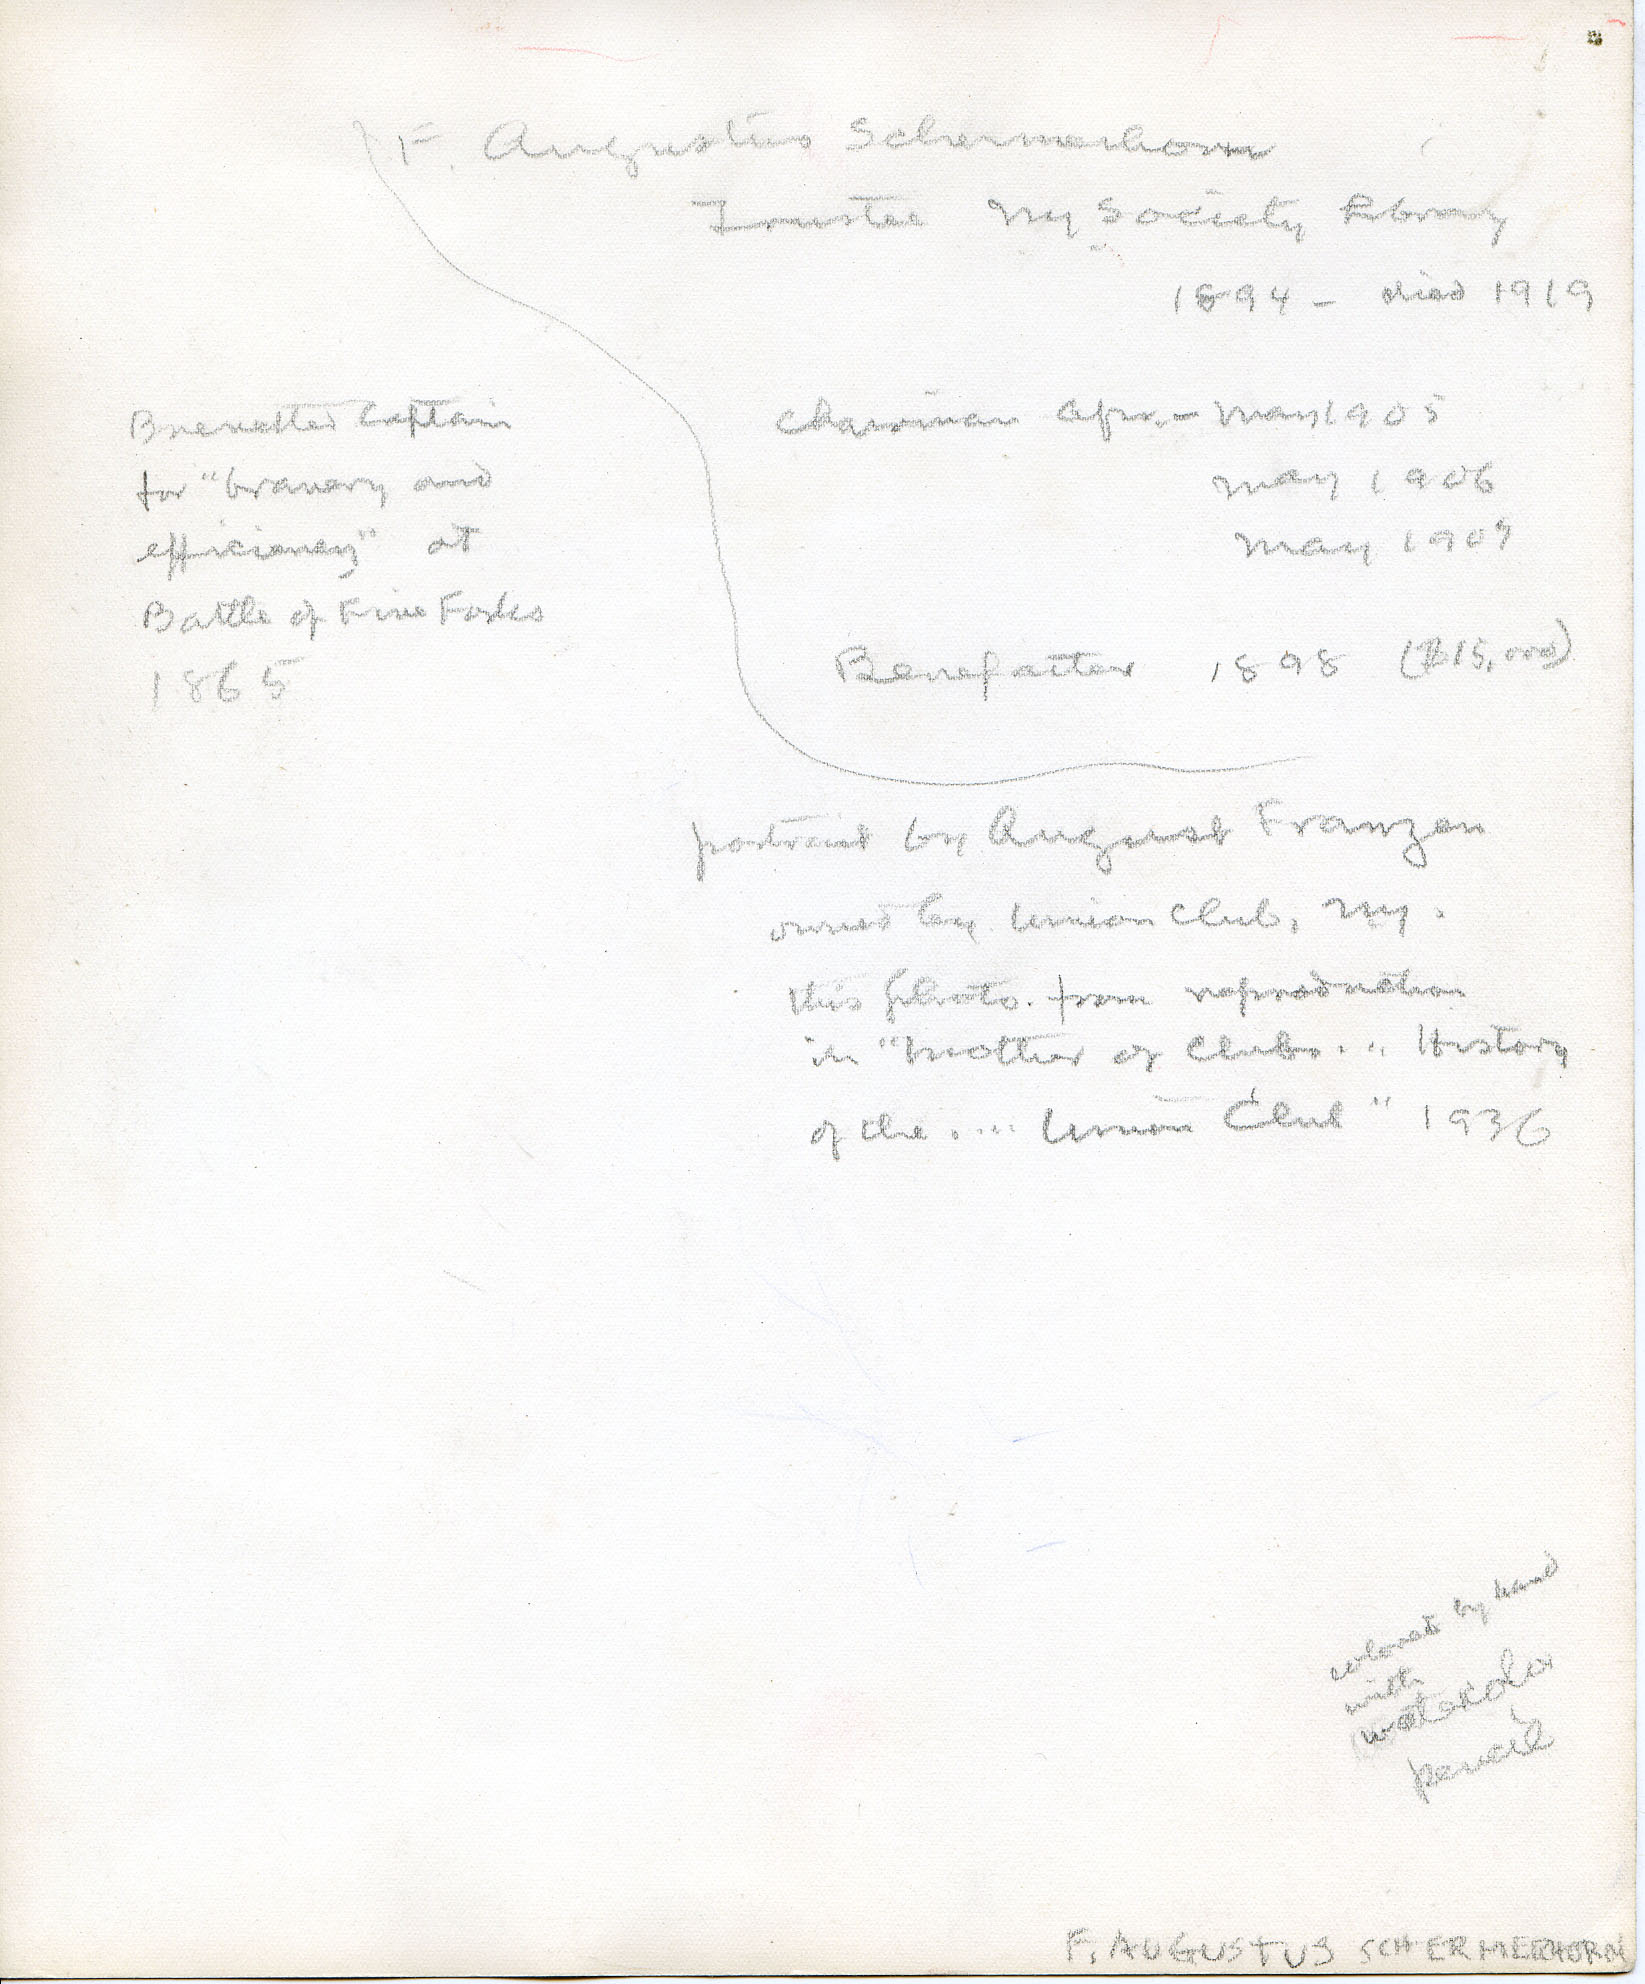 F. Augustus Schermerhorn
Trustee NY Society Library
1894 - died 1919
Brevetted Captain
for "bravery and
efficiency" at
Battle of Five Forks
1865
Chairman Apr. - May 1905
May 1906
May 1909
Benefactor 1898 ($15,000)
portrait by August Franzen
owned by Union Club, NY.
this photo. from reproduction
in "Mother of Clubs... History
of the .... Union Club" 1936
colored by hand
with
watercolor
pencil
F. AUGUSTUS SCHERMERHORN